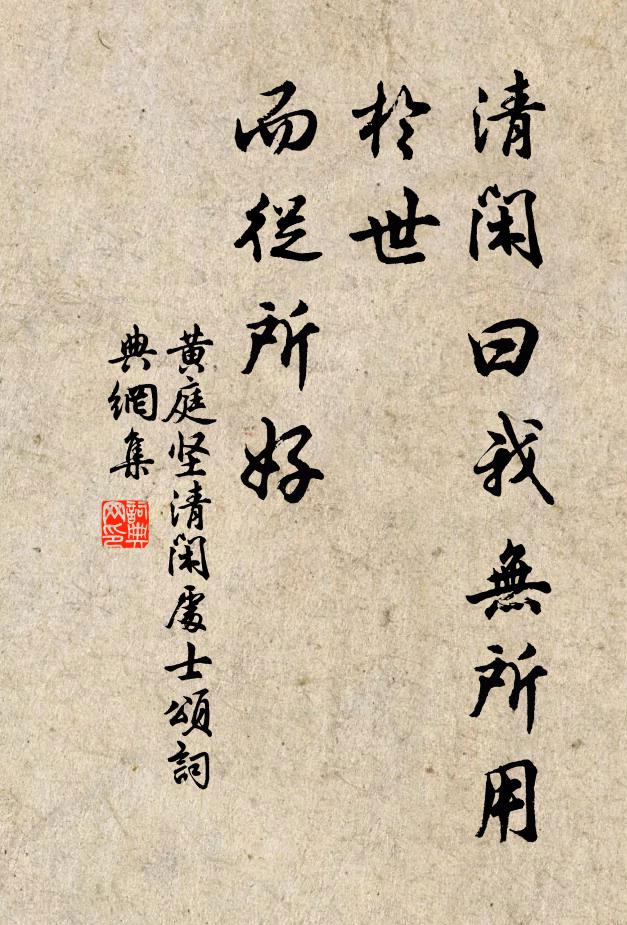 清閑曰我無所用
於世
而從所好
黄庭坚清閑處士頌詞
典網集
詞典网印